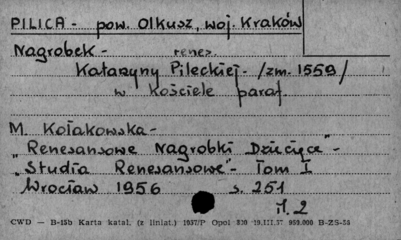 PILICA - pow. Olkusz, woj. Kraków
Nagrobek - renes.
Katarzyny Pileckiej - /zm. 1559/
w kościele paraf.
M. Kołakowska -
„Renesansowe Nagrobki Dziecięce" -
„Studia Renesansowe" - Tom I
Wrocław 1956 s. 251
il. 2
CWD — B-15b Karta katal. (z liniat.) 1957/P Opol 830 19.III.57 959.000 B-ZS-56